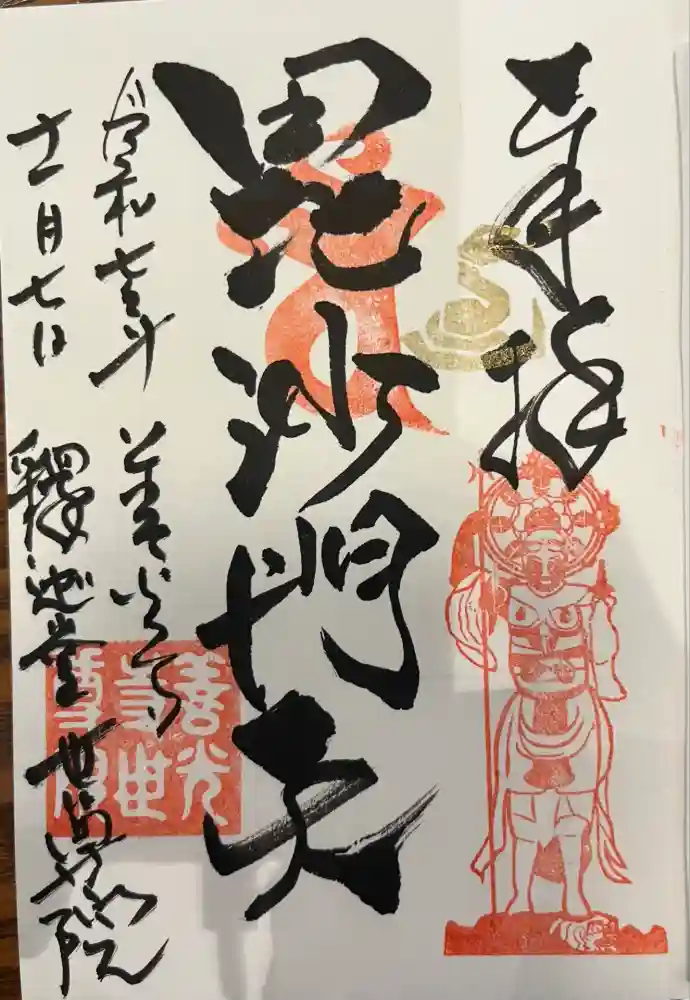 奉拝
毘沙門天
令和七年
善光寺
十一月七日
釋迦堂 世尊院
善光
寺世
尊院